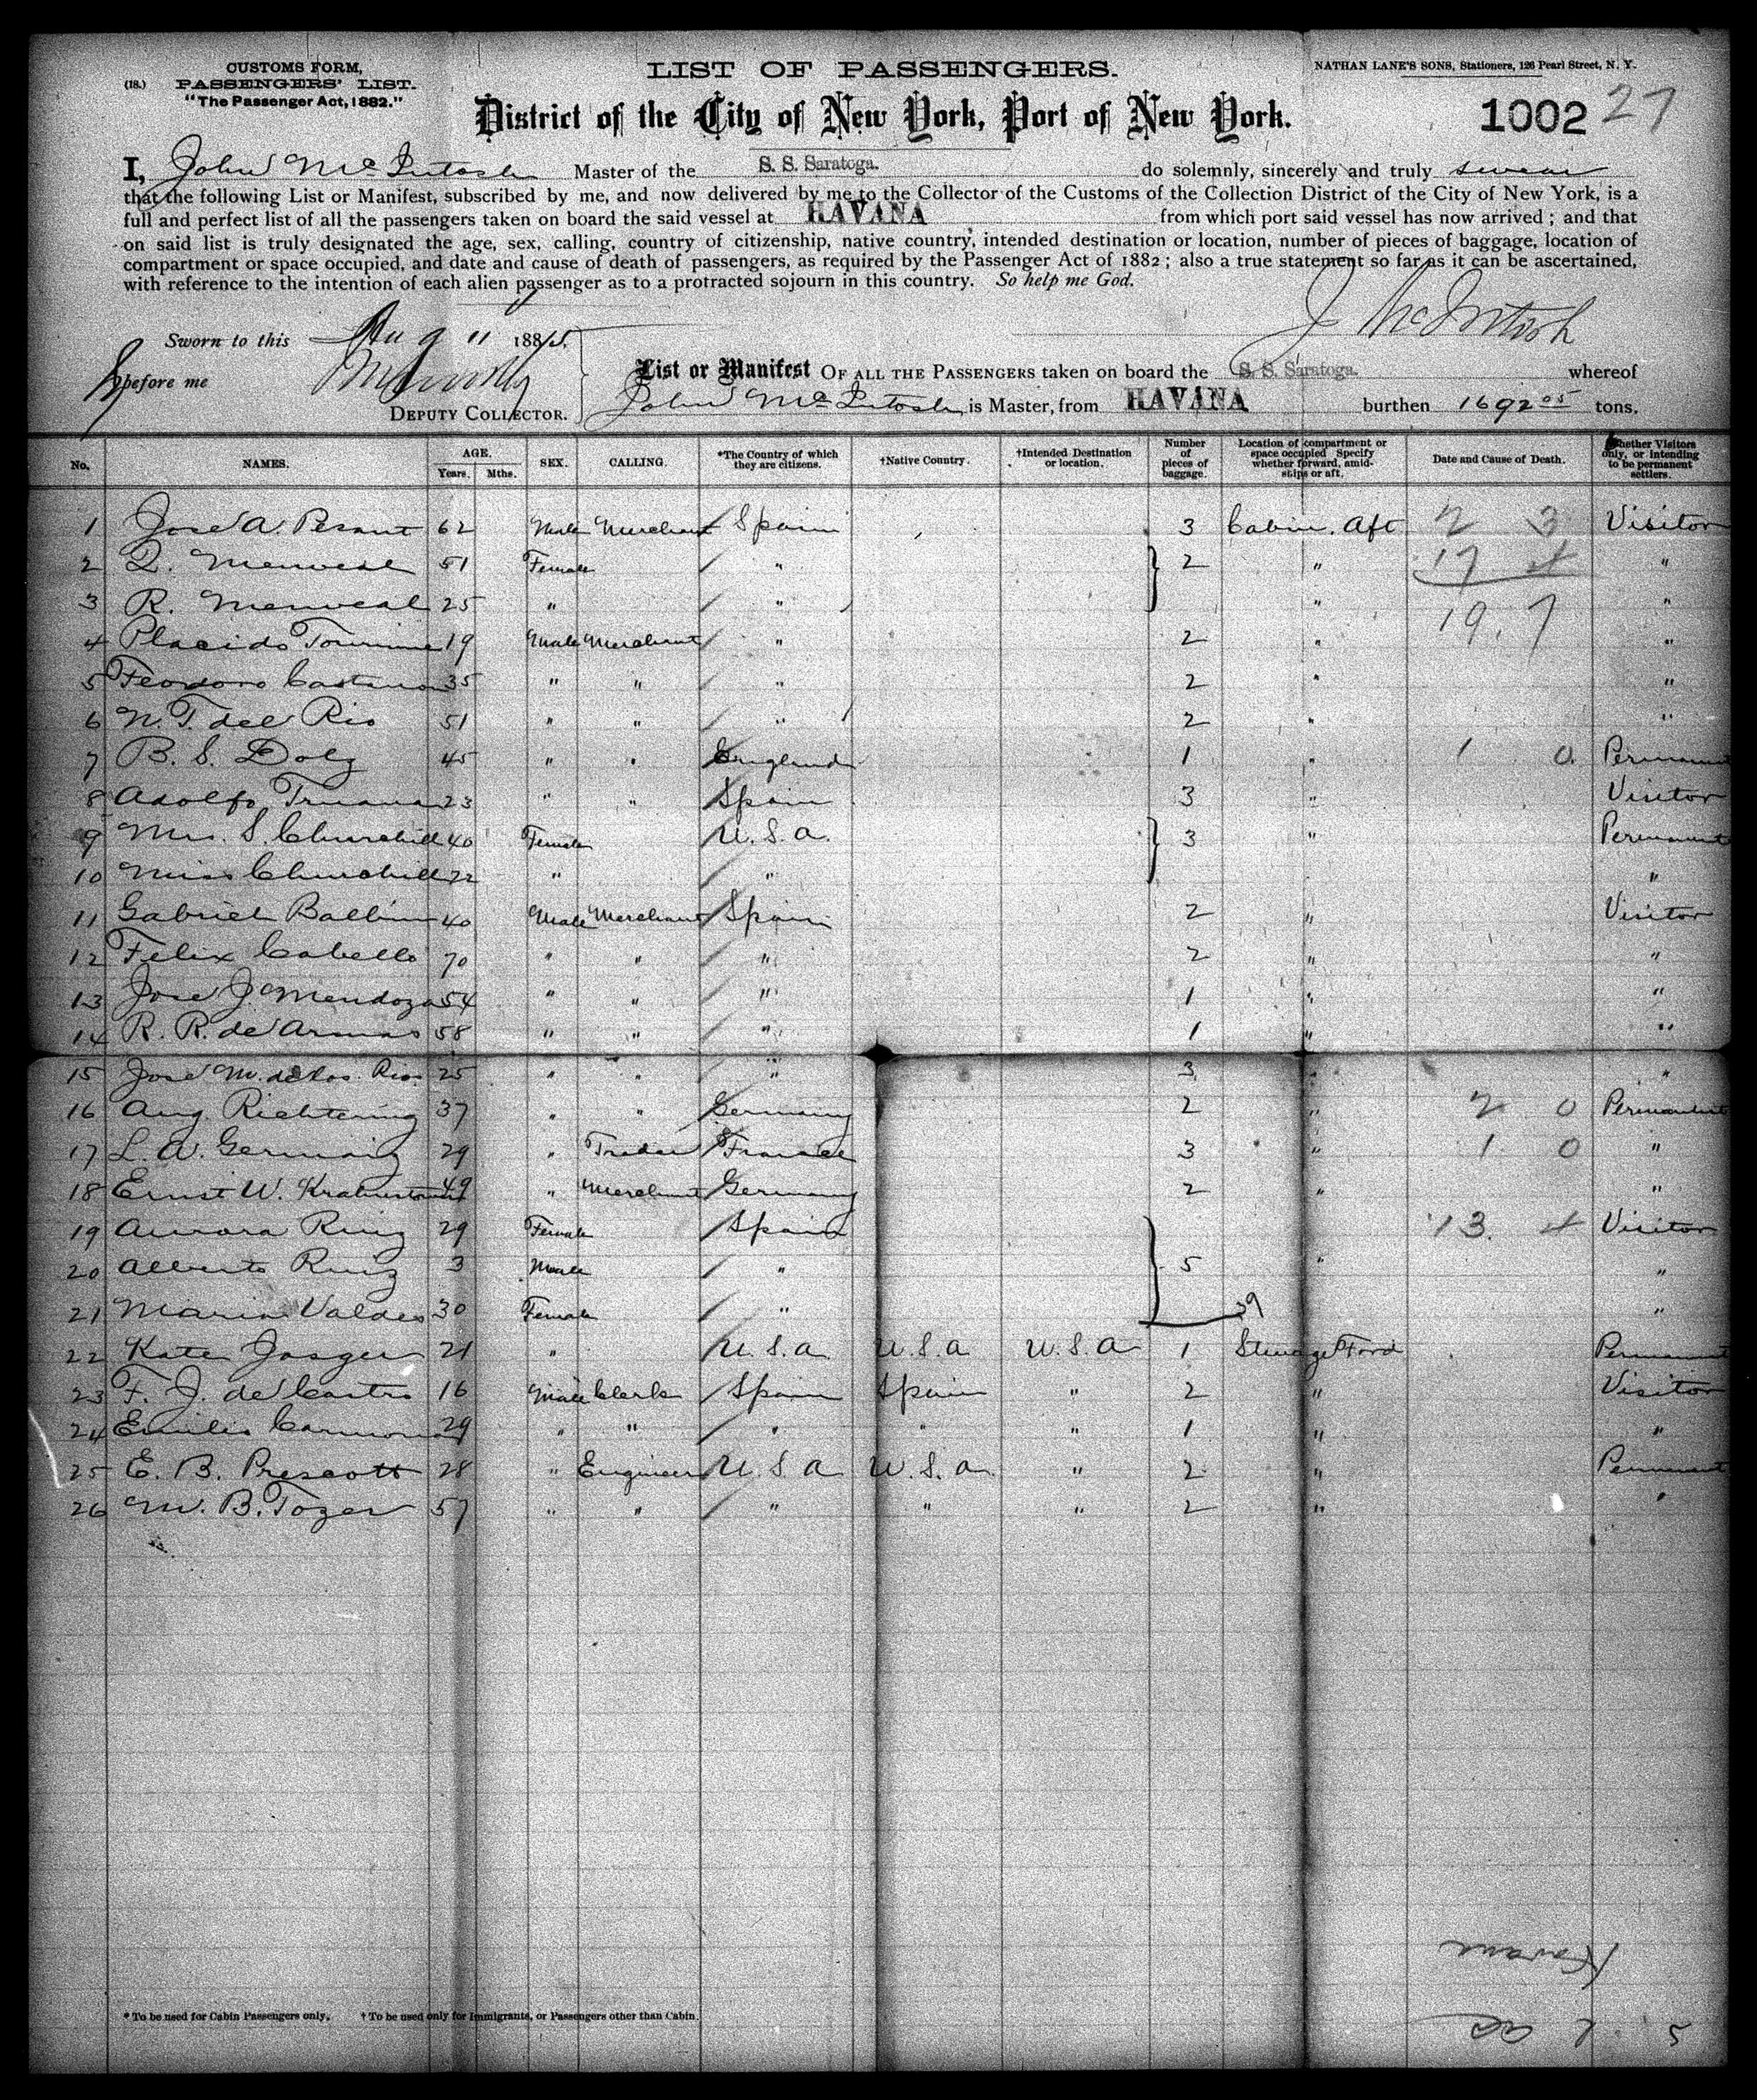 CUSTOMS FORM,
(18.) PASSENGERS' LIST.
"The Passenger Act, 1882."
LIST OF PASSENGERS.
NATHAN LANE'S SONS, Stationers, 126 Pearl Street, N. Y.
District of the City of New York, Port of New York.
1002 27
I, John McIntosh Master of the S. S. Saratoga. do solemnly, sincerely and truly swear
that the following List or Manifest, subscribed by me, and now delivered by me to the Collector of the Customs of the Collection District of the City of New York, is a
full and perfect list of all the passengers taken on board the said vessel at HAVANA from which port said vessel has now arrived; and that
on said list is truly designated the age, sex, calling, country of citizenship, native country, intended destination or location, number of pieces of baggage, location of
compartment or space occupied, and date and cause of death of passengers, as required by the Passenger Act of 1882; also a true statement so far as it can be ascertained,
with reference to the intention of each alien passenger as to a protracted sojourn in this country. So help me God.
J McIntosh
Sworn to this Aug 11 1885.
before me
DEPUTY COLLECTOR.
List or Manifest OF ALL THE PASSENGERS taken on board the S. S. Saratoga. whereof
John McIntosh is Master, from HAVANA burthen 1692 05 tons.
No. NAMES. AGE. Years. Mths. SEX. CALLING. *The Country of which they are citizens. †Native Country. †Intended Destination or location. Number of pieces of baggage. Location of compartment or space occupied Specify whether forward, amidships or aft. Date and Cause of Death. Whether Visitors only, or intending to be permanent settlers.
1 Jose A. Pesant 62 Male Merchant Spain 3 Cabin. Aft 2 3 Visitor
2 51 Female " 2 " 17 4 "
3 R. 25 " " " 19. 7 "
4 Placido 19 Male Merchant " 2 " "
5 Teodoro 35 " " " 2 " "
6 N. T. del Rio 51 " " " 2 " "
7 B. S. Dolz 45 " " England 1 " 1 0. Permanent
8 Adolfo 23 " " Spain 3 " Visitor
9 Mrs. S. Churchill 40 Female U. S. A. 3 " Permanent
10 Miss Churchill 22 " " "
11 Gabriel 40 Male Merchant Spain 2 " Visitor
12 Felix Cabello 70 " " " 2 " "
13 Jose J. Mendoza 54 " " " 1 " "
14 R. R. de Armas 58 " " " 1 " "
15 Jose M. de los Rios 25 " " " 3 " "
16 Aug. Richtering 37 " " Germany 2 " 2 0 Permanent
17 L. A. Germain 29 " Trader France 3 " 1. 0 "
18 Ernst W. 49 " Merchant Germany 2 " "
19 Aurora Ruiz 29 Female Spain 13. 4 Visitor
20 Alberto Ruiz 3 Male " 5 " "
21 Maria Valdes 30 Female " 39 "
22 Kate Jasger 21 " U. S. A. U. S. A U. S. A 1 Steerage Ford Permanent
23 F. J. de Castro 16 Male Clerk Spain Spain " 2 " Visitor
24 Emilio 29 " " " " " 1 " "
25 E. B. Prescott 28 " Engineer U. S. A U. S. A. " 2 " Permanent
26 M. B. Tozer 57 " " " " " 2 " "
* To be used for Cabin Passengers only. † To be used only for Immigrants, or Passengers other than Cabin.
Havana